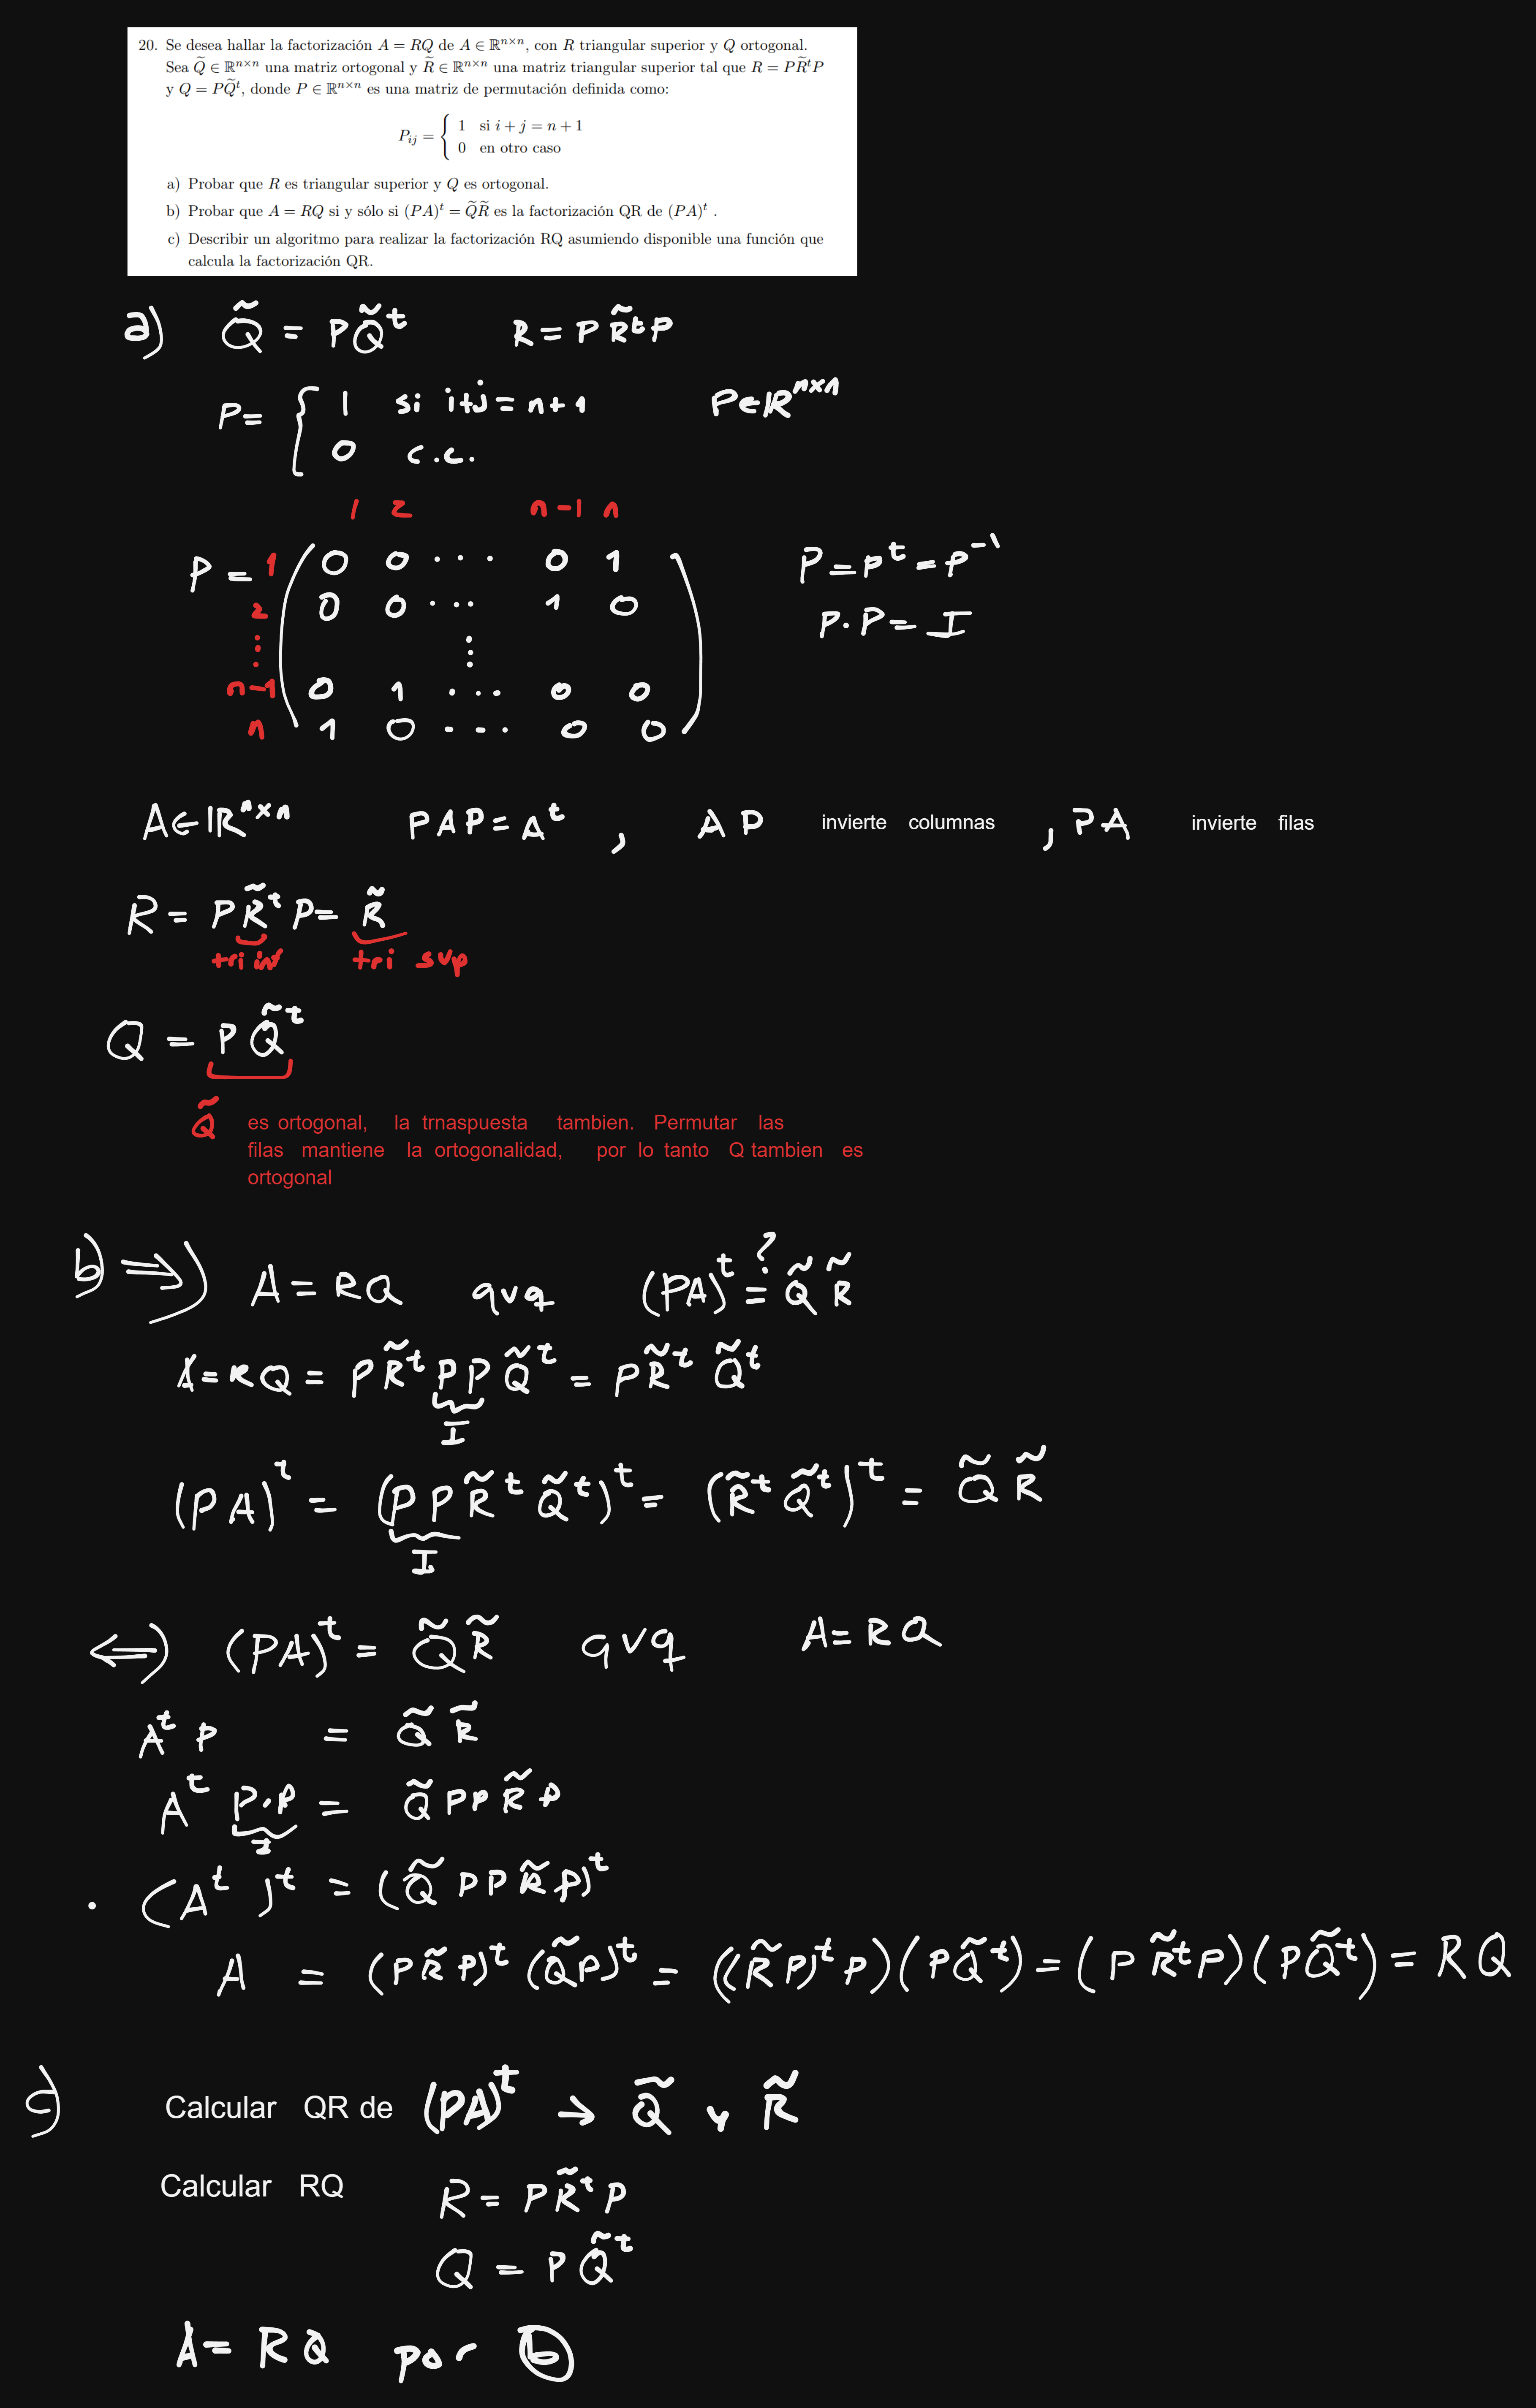 20. Se desea hallar la factorización A = RQ de A ∈ ℝⁿˣⁿ, con R triangular superior y Q ortogonal.
Sea Q̃ ∈ ℝⁿˣⁿ una matriz ortogonal y R̃ ∈ ℝⁿˣⁿ una matriz triangular superior tal que R = PR̃ᵗP
y Q = PQ̃ᵗ, donde P ∈ ℝⁿˣⁿ es una matriz de permutación definida como:
Pᵢⱼ = { 1 si i + j = n + 1
0 en otro caso
a) Probar que R es triangular superior y Q es ortogonal.
b) Probar que A = RQ si y sólo si (PA)ᵗ = Q̃R̃ es la factorización QR de (PA)ᵗ .
c) Describir un algoritmo para realizar la factorización RQ asumiendo disponible una función que
calcula la factorización QR.
a) Q̃ = PQ̃ᵗ R = PR̃ᵗP
P= { 1 si i+j = n+1 P∈ℝⁿˣⁿ
0 c.c.
1 2 n-1 n
P = 1 0 0 ... 0 1 P=Pᵗ=P⁻¹
2 0 0 ... 1 0 P.P= I
⋮ ⋮
n-1 0 1 ... 0 0
n 1 0 ... 0 0
A∈ℝⁿˣⁿ PAP=Aᵗ , AP invierte columnas , PA invierte filas
R = PR̃ᵗP= R̃
tri inf tri sup
Q = PQ̃ᵗ
Q̃ es ortogonal, la trnaspuesta tambien. Permutar las
filas mantiene la ortogonalidad, por lo tanto Q tambien es
ortogonal
b) ⇒) A = RQ qvq (PA)ᵗ =? Q̃R̃
A=RQ = PR̃ᵗPPQ̃ᵗ = PR̃ᵗQ̃ᵗ
I
(PA)ᵗ = (PPR̃ᵗQ̃ᵗ)ᵗ = (R̃ᵗQ̃ᵗ)ᵗ = Q̃R̃
I
⇐) (PA)ᵗ = Q̃R̃ qvq A=RQ
AᵗP = Q̃R̃
AᵗP.P = Q̃PPR̃P
I
. (Aᵗ)ᵗ = (Q̃PPR̃P)ᵗ
A = (PR̃P)ᵗ(Q̃P)ᵗ = ((R̃P)ᵗP)(PQ̃ᵗ) = (PR̃ᵗP)(PQ̃ᵗ) = RQ
c) Calcular QR de (PA)ᵗ → Q̃ y R̃
Calcular RQ R = PR̃ᵗP
Q = PQ̃ᵗ
A= RQ por b